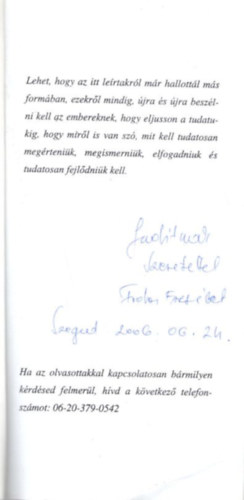 Lehet, hogy az itt leírtakról már hallottál más
formában, ezekről mindig, újra és újra beszél-
ni kell az embereknek, hogy eljusson a tudatu-
kig, hogy miről is van szó, mit kell tudatosan
megérteniük, megismerniük, elfogadniuk és
tudatosan fejlődniük kell.
Juditnak
Szeretettel
Szeged 2006. 06. 24.
Ha az olvasottakkal kapcsolatosan bármilyen
kérdésed felmerül, hívd a következő telefon-
számot: 06-20-379-0542